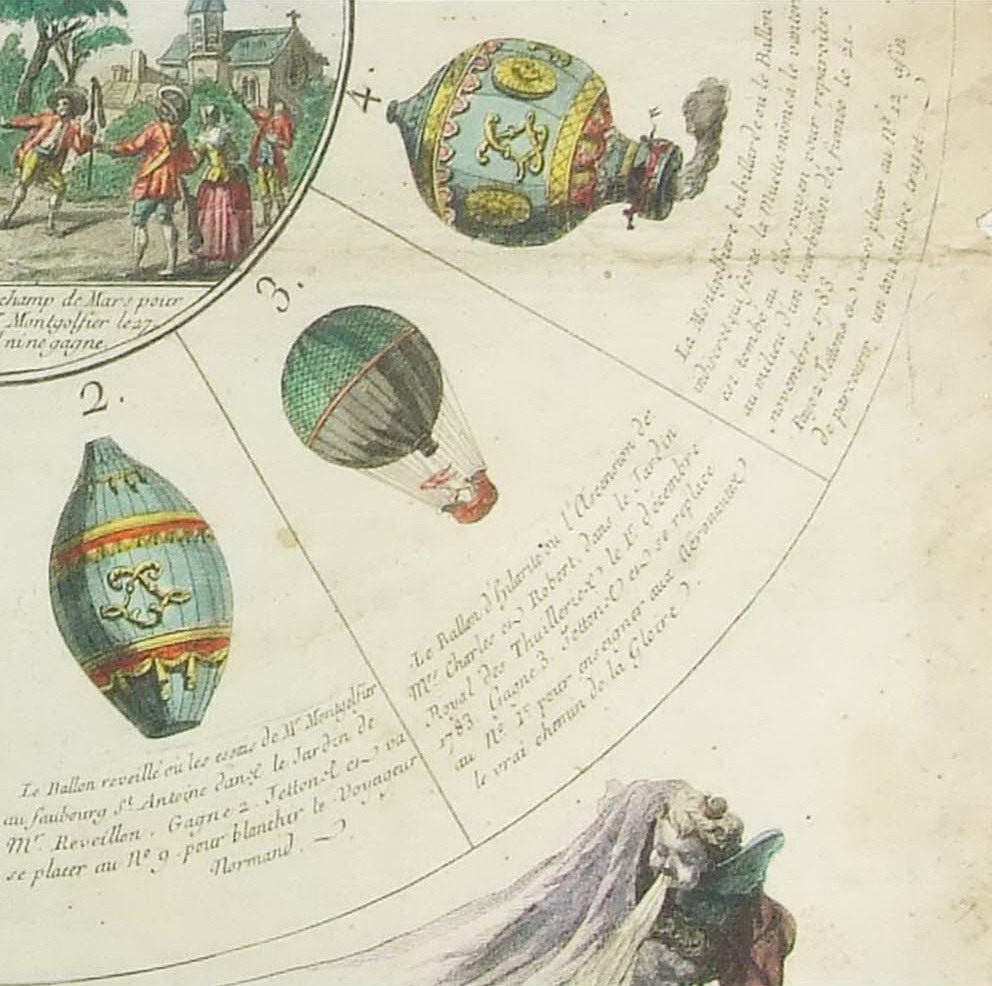 champ de Mars pour
Montgolfier le 27.
nine gagne.
2.
Le Ballon reveillé où les essais de Mr. Montgolfier
au faubourg St. Antoine dans le Jardin de
Mr. Reveillon. Gagne 2. Jettons et va
se placer au No. 9. pour blancher le Voyageur
Normand.
3.
Le Ballon d'hilarité ou l'Ascension de
Mrs. Charles et Robert, dans le Jardin
Royal des Thuilleries le 1r. décembre
1783. Gagne 3. Jettons et se replace
au No. 15 pour enseigner aux Aeromanes
le vrai chemin de la Gloire.
4.
La Montgolfiere babillarde où le Ballon
indiscret qui s'éleve la Muette mené à le vanter
et tombe au
au milieu d'un tourbillon de fumée le 21.
novembre 1783
Paye 2 Jettons et va se placer au No. 12 afin
de parcourir un long autre trajet.